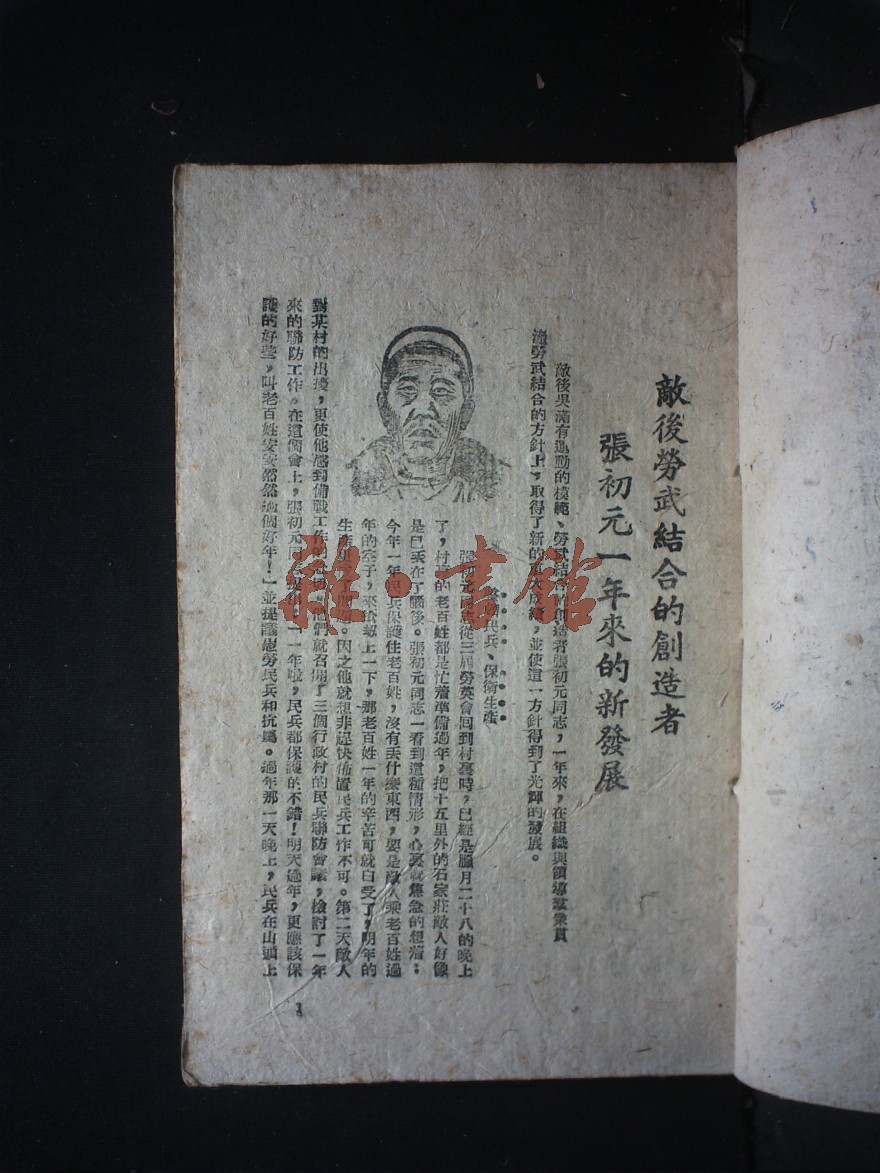 敵後勞武結合的創造者
張初元一年來的新發展
敵後吳滿有運動的模範、勞武結合的創造者張初元同志，一年來，在組織與領導羣衆貫
澈勞武結合的方針上，取得了新的重大成績，並使這一方針得到了光輝的發展。
民兵、保衛生產
張初元同志從三屆勞英會回到村裏時，已經是臘月二十八的晚上
了，村裏的老百姓都是忙着準備過年，把十五里外的石家莊敵人好像
是已丟在了腦後。張初元同志一看到這種情形，心裏就焦急的想着：
今年一年民兵保護住老百姓，沒有丟什麼東西，要是敵人乘老百姓過
年的空子，來搶劫上一下，那老百姓一年的辛苦可就白受了，明年的
生產。因之他就想非趕快佈置民兵工作不可。第二天敵人
對某村的出擾，更使他感到備戰工作的，他們就召開了三個行政村的民兵聯防會議，檢討了一年
來的聯防工作。在這個會上，張初元同志提出：「一年啦，民兵都保護的不錯！明天過年，更應該保
護的好些，叫老百姓安安然然過個好年！」並提議慰勞民兵和抗屬。過年那一天晚上，民兵在山頭上
1
雜·書館